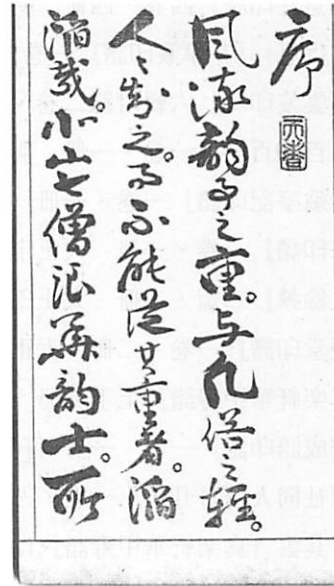 序
風流韻事之重。与凡俗之軽。
人々知之。而不能從其重者。滔
滔哉。山七僧浪華韻士。所